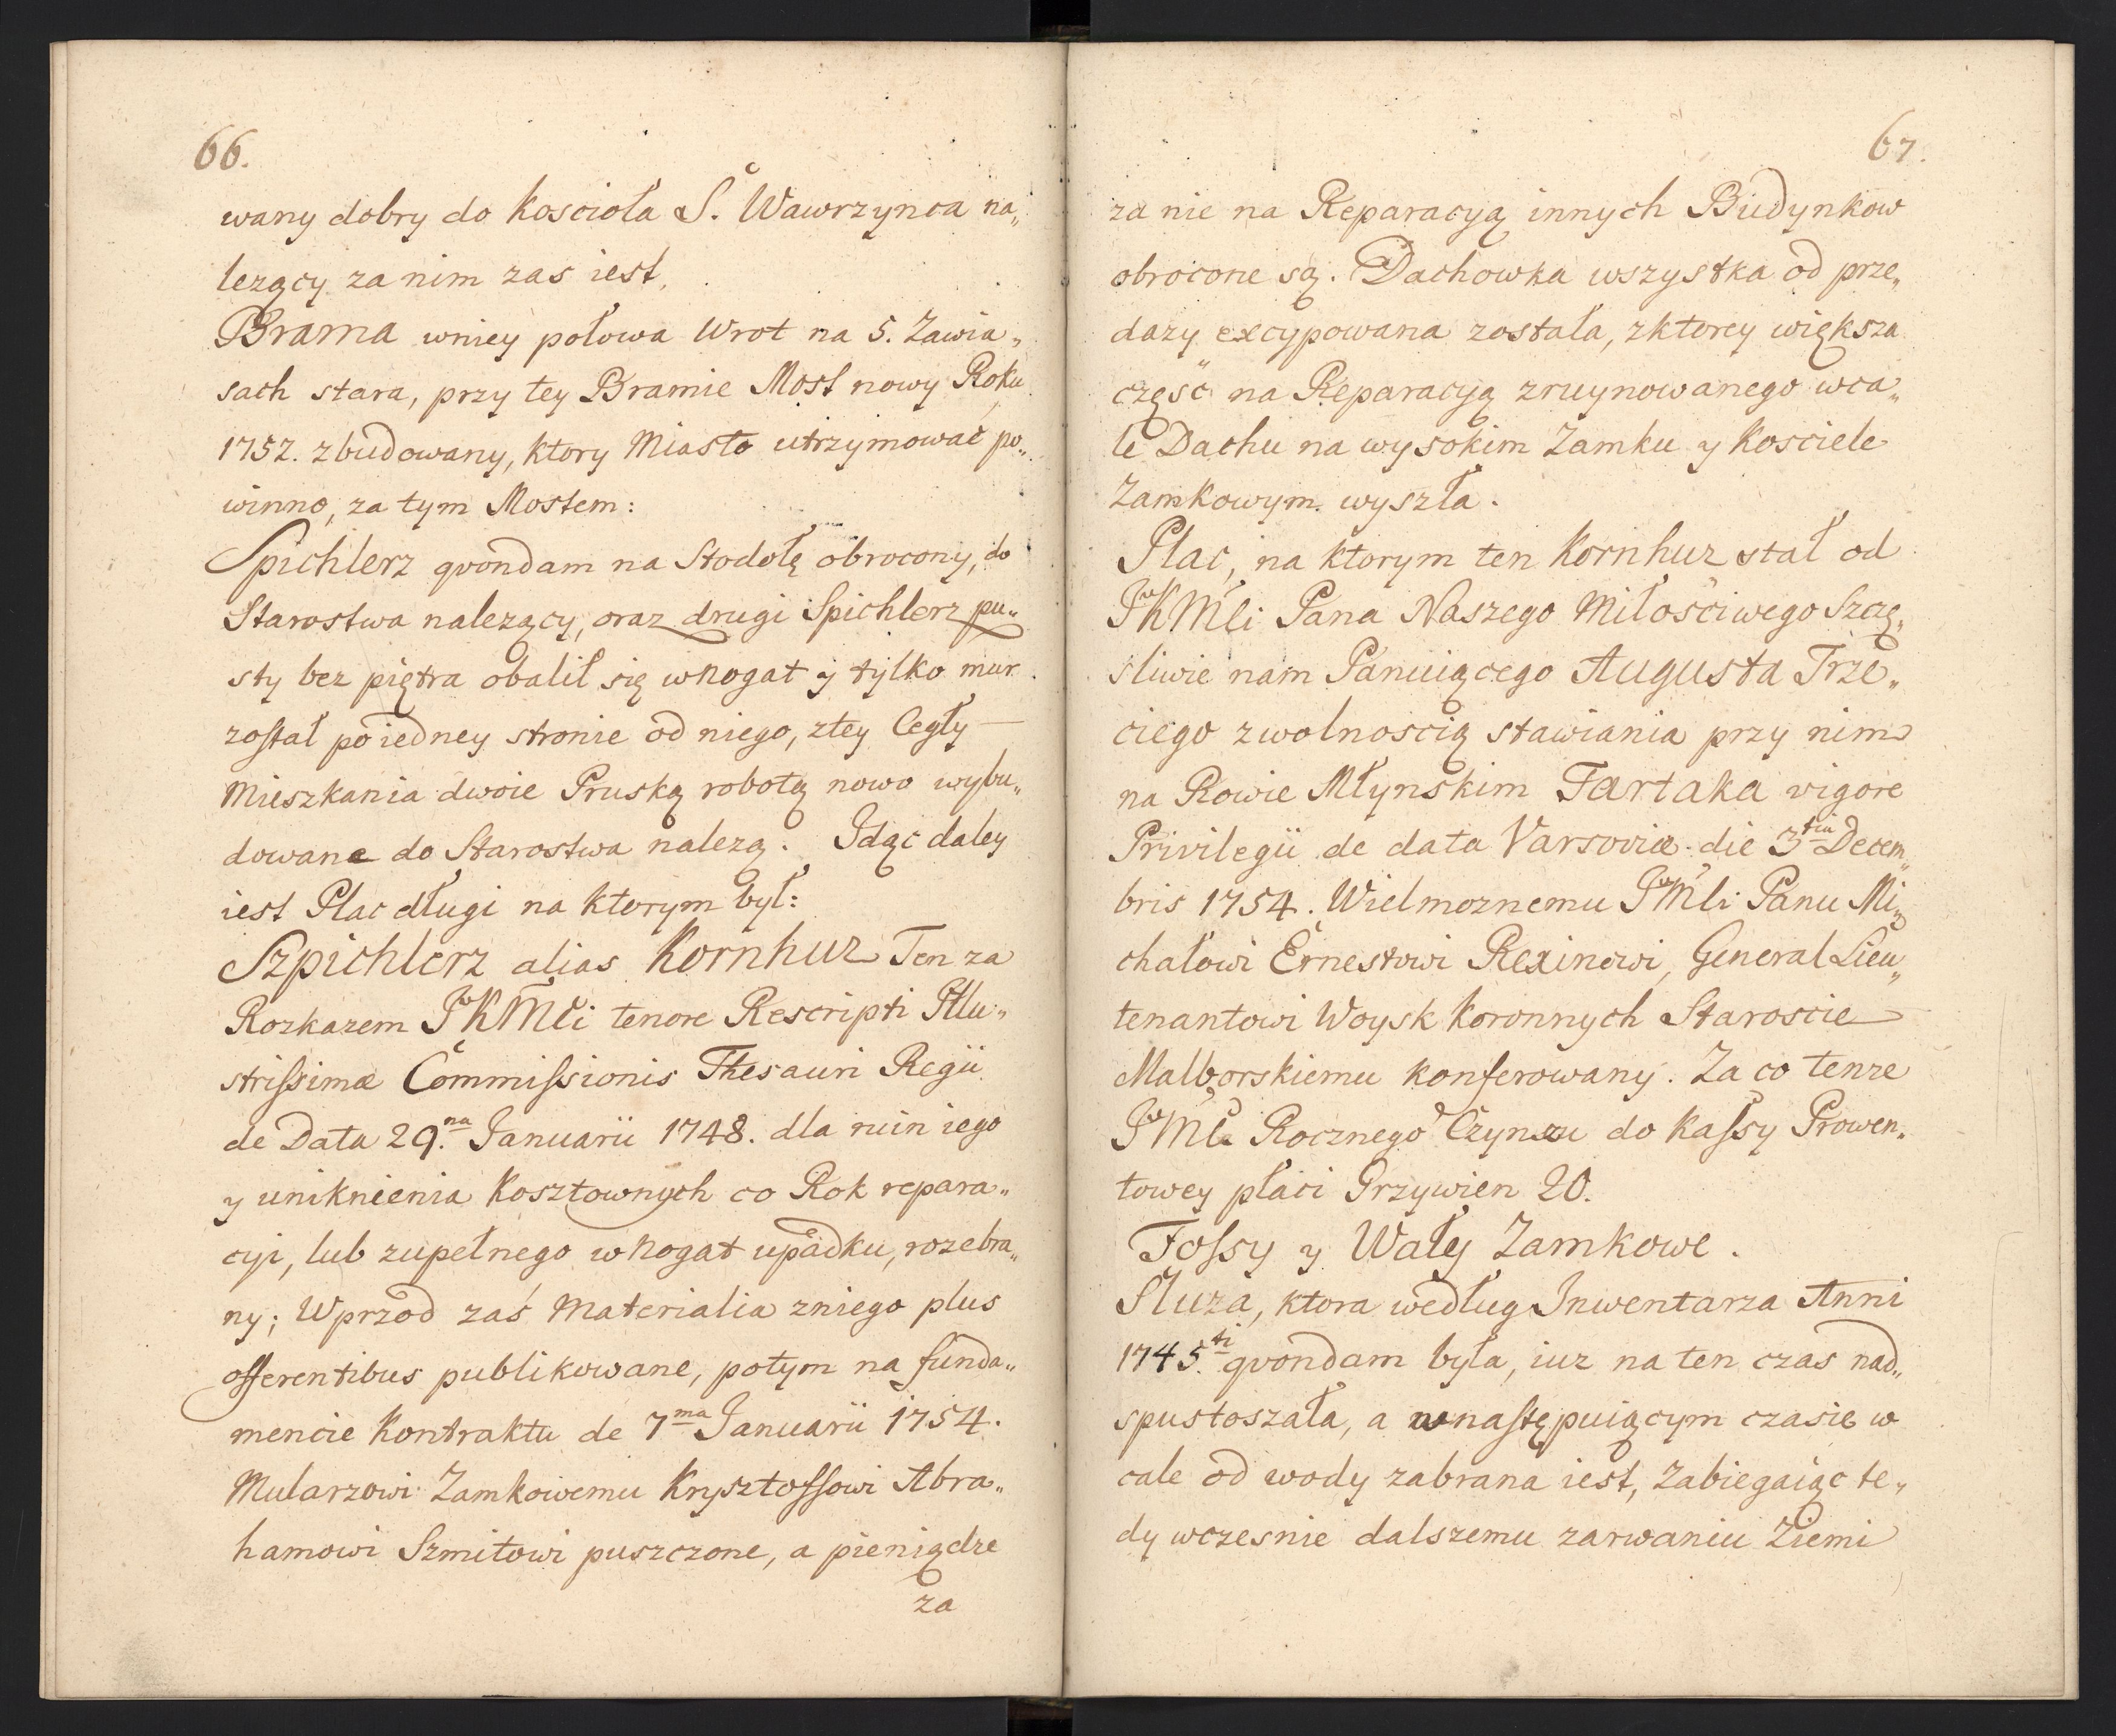 66.
wany dobry do Kościoła S. Wawrzynca na„
lezący za nim zas iest,
Brama wniey połowa Wrot na 5. Zawia„
sach stara, przy tey Bramie Most nowy Roku
1752. zbudowany, ktory Miasto utrzymować po„
winno, za tym Mostem:
Spichlerz qvondam na Stodołę obrocony, do
Starostwa nalezący, oraz drugi Spichlerz pu„
sty bez piętra obalił się wNogat y tylko mur
został po iedney stronie od niego, ztey Cegły
Mieszkania dwoie Pruską robotą nowo wybu„
dowane do Starostwa nalezą. Idąc daley
iest Plac długi na ktorym był:
Szpichlerz alias Kornhuz Ten za
Rozkazem JKMCi tenore Rescripti Illu„
strissimæ Commissionis Thesauri Regii
de Data 29.na Januarii 1748. dla ruin iego
y uniknienia Kosztownych co Rok repara„
cyi, lub zupełnego wNogat upadku, rozebra„
ny; Wprzod zaś Materialia zniego plus
offerentibus publikowane, potym na funda„
mencie Kontraktu de 7ma Januarii 1754.
Mularzowi Zamkowemu Krysztoffowi Abra„
hamowi Szmitowi puszczone, a pieniądze
za
67.
za nie na Reparacyą innych Budynkow
obrocone są. Dachowka wszystka od prze„
dazy excypowana została, zktorey większa
część na Reparacyą zruynowanego wca„
le Dachu na wysokim Zamku y Kosciele
Zamkowym wyszła.
Plac, na ktorym ten Kornhuz stał od
JKMCi Pana Naszego Miłościwego Szczę„
sliwie nam Panuiącego Augusta Trze„
ciego zwolnoscią stawiania przy nim
na Rowie Młynskim Tartaka vigore
Privilegii de data Varsoviæ die 3tia Decem„
bris 1754. Wielmoznemu JMCi Panu Mi„
chałowi Ernestowi Rexinowi, General Lieu„
tenantowi Woysk Koronnych Staroscie
Malborskiemu konferowany. Za co tenze
JMC Rocznego Czynszu do Kassy Prowen„
towey płaci Grzywien 20.
Fossy y Wały Zamkowe.
Sluza, ktora według Inwentarza Anni
1745.ti qvondam była, iuz na ten czas nad„
spustoszała, a wnastępuiącym czasie w
cale od wody zabrana iest, Zabiegaiąc te„
dy wczesnie dalszemu zarwaniu Ziemi